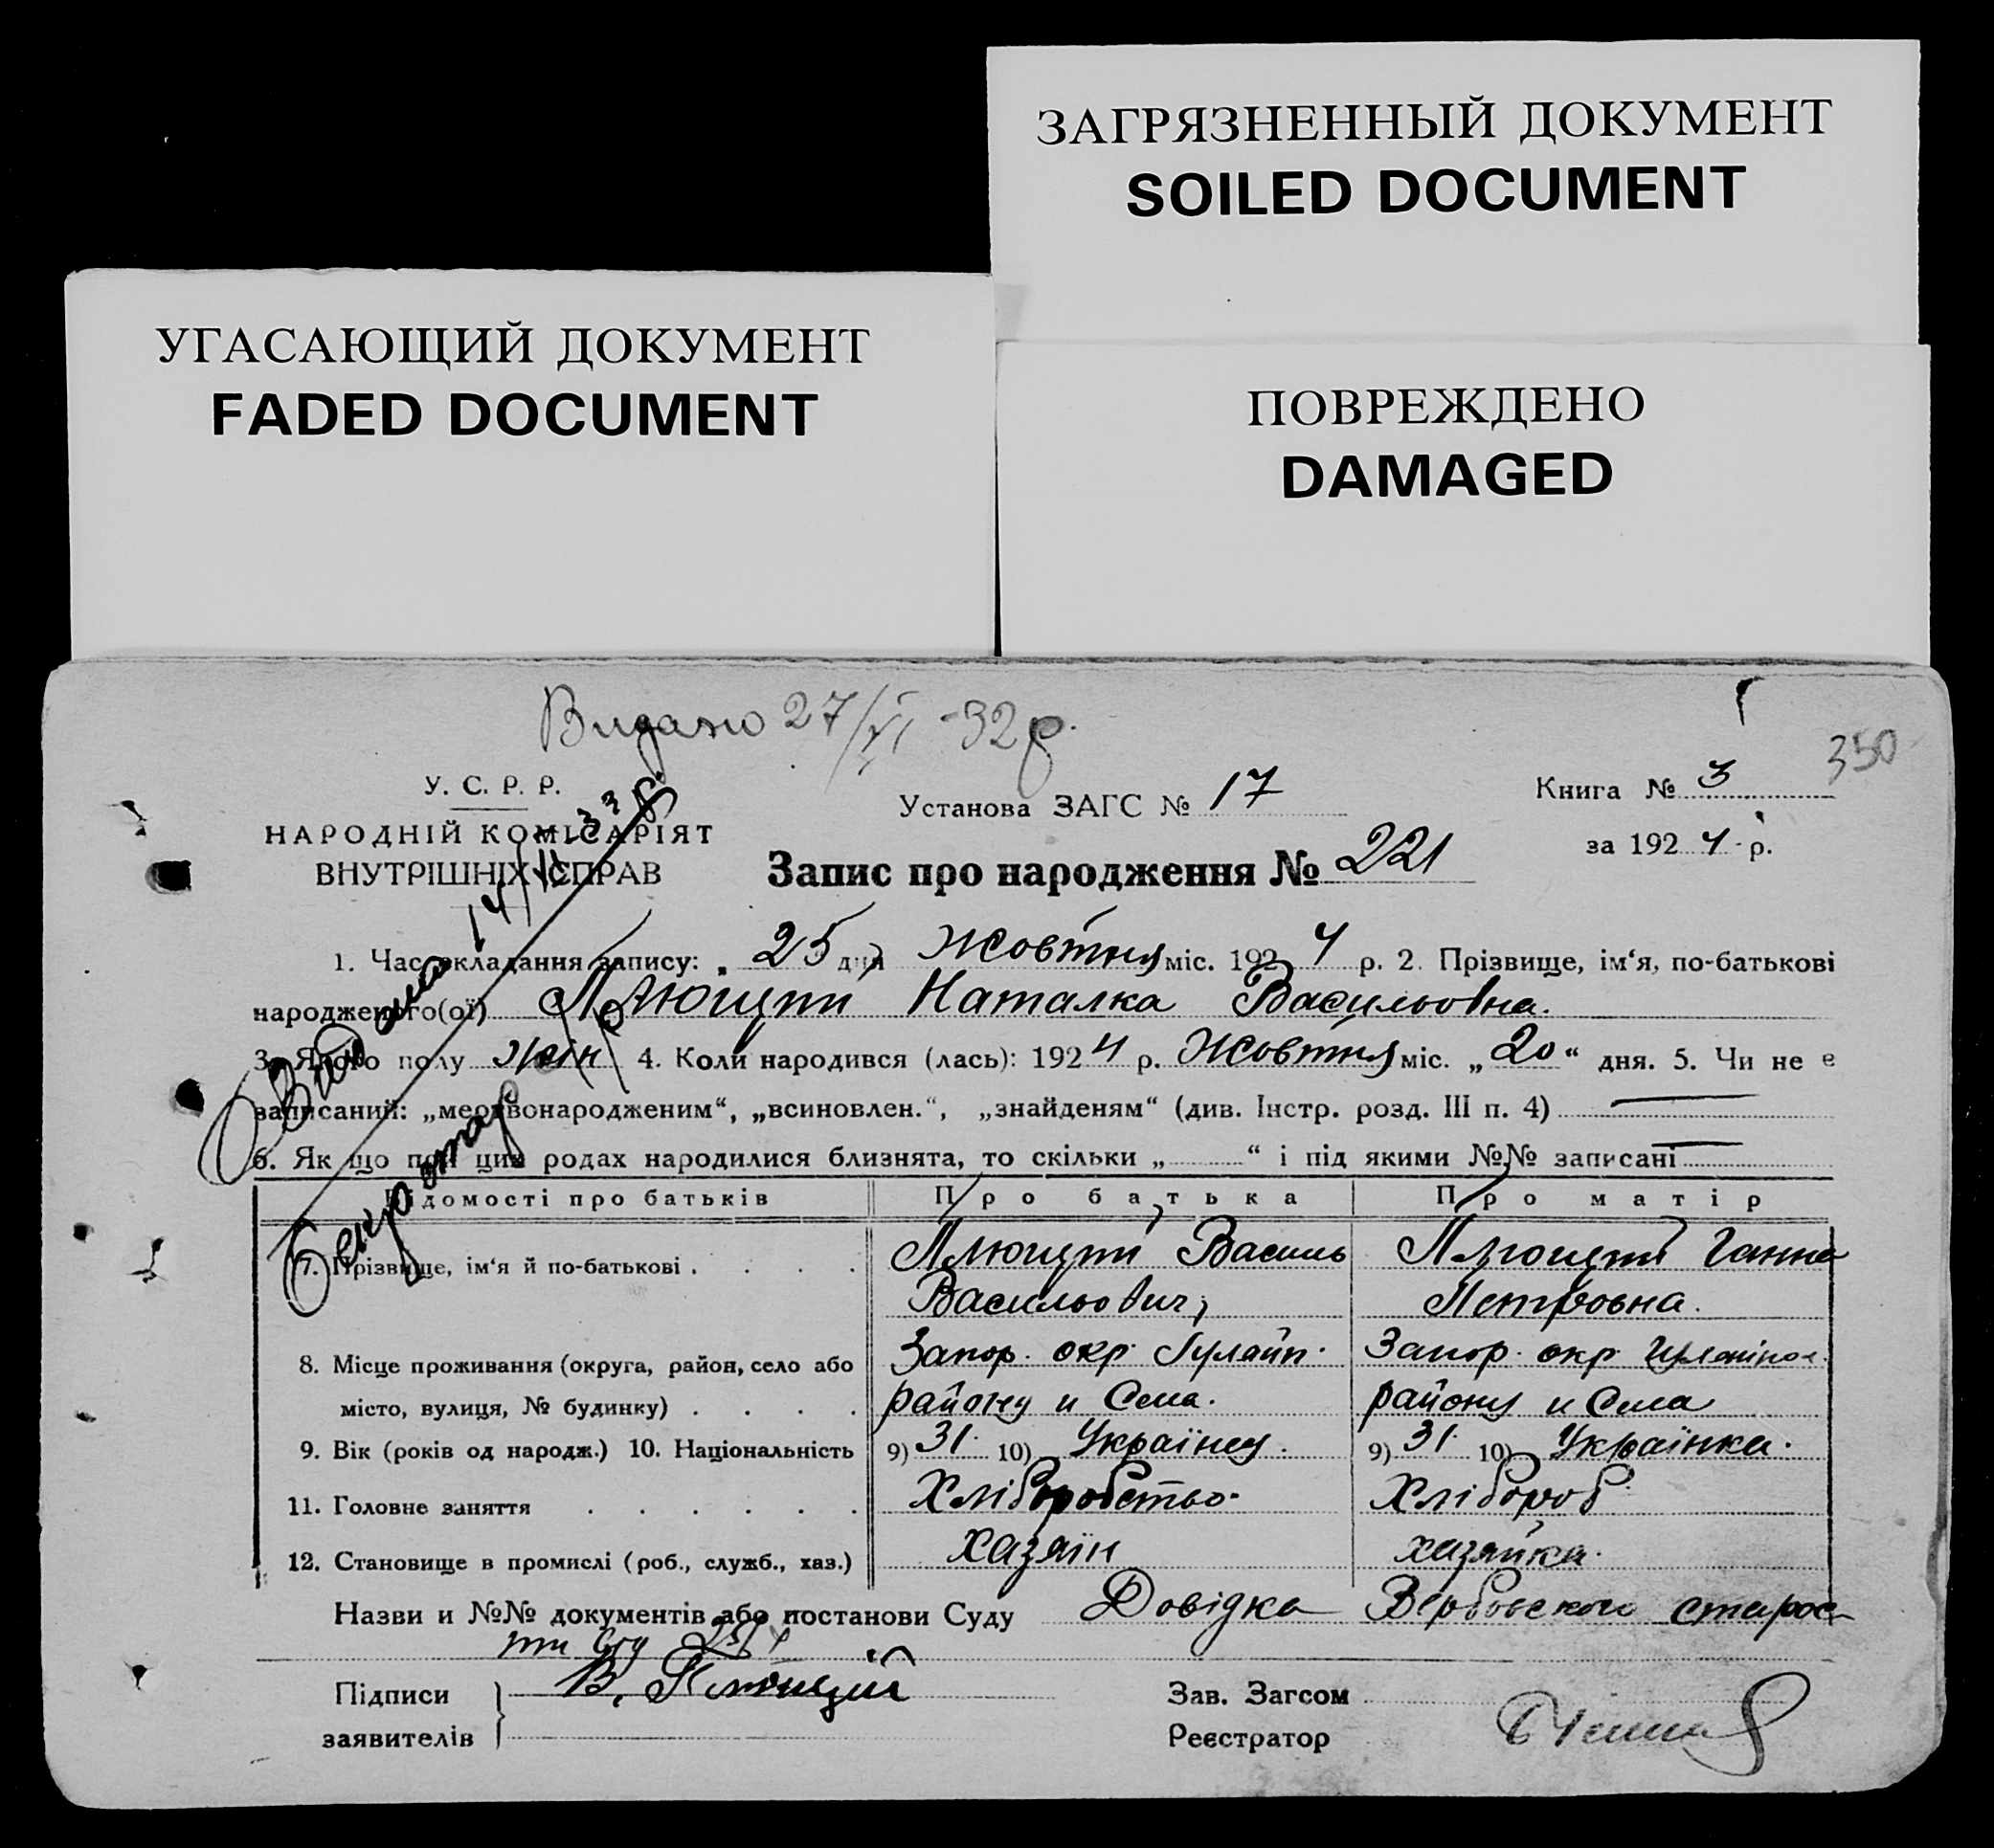 ЗАГРЯЗНЕННЫЙ ДОКУМЕНТ
SOILED DOCUMENT
УГАСАЮЩИЙ ДОКУМЕНТ
FADED DOCUMENT
ПОВРЕЖДЕНО
DAMAGED
Видано 27/XI -32 р.
350
У. С. Р. Р.
НАРОДНІЙ КОМІСАРІЯТ
ВНУТРІШНІХ СПРАВ
Установа ЗАГС № 17
Книга № 3
за 1924 р.
Запис про народження № 221
1. Час складання запису: „ 25 дня Жовтня міс. 1924 р. 2. Прізвище, ім‘я, по-батькові
народженого(ої) Плющій Наталка Васильовна.
3. Якого полу жін 4. Коли народився (лась): 1924 р. Жовтня міс. „20“ дня. 5. Чи не е
записаний: „мертвонародженим“, „всиновлен.“, „знайденям“ (див. Інстр. розд. III п. 4) —
6. Як що при цих родах народилися близнята, то скільки „ “ і під якими №№ записані —
Відомості про батьків Про батька Про матір
7. Прізвище, ім‘я й по-батькові . . . . Плющій Василь Плющій Ганна
Васильович Петровна.
8. Місце проживання (округа, район, село або Запор. окр. Гуляйп. Запор. окр. Гуляйпол.
місто, вулиця, № будинку) . . . . району и Села. району и Села
9. Вік (років од народж.) 10. Національність 9) 31 10) Українец. 9) 31 10) Українка.
11. Головне заняття . . . . . . Хліборобство. Хлібороб
12. Становище в промислі (роб., служб., хаз.) хазяїн хазяйка.
Назви и №№ документів або постанови Суду Довідка Вербовского старос-
Підписи В. Плющій Зав. Загсом
заявителів Реєстратор